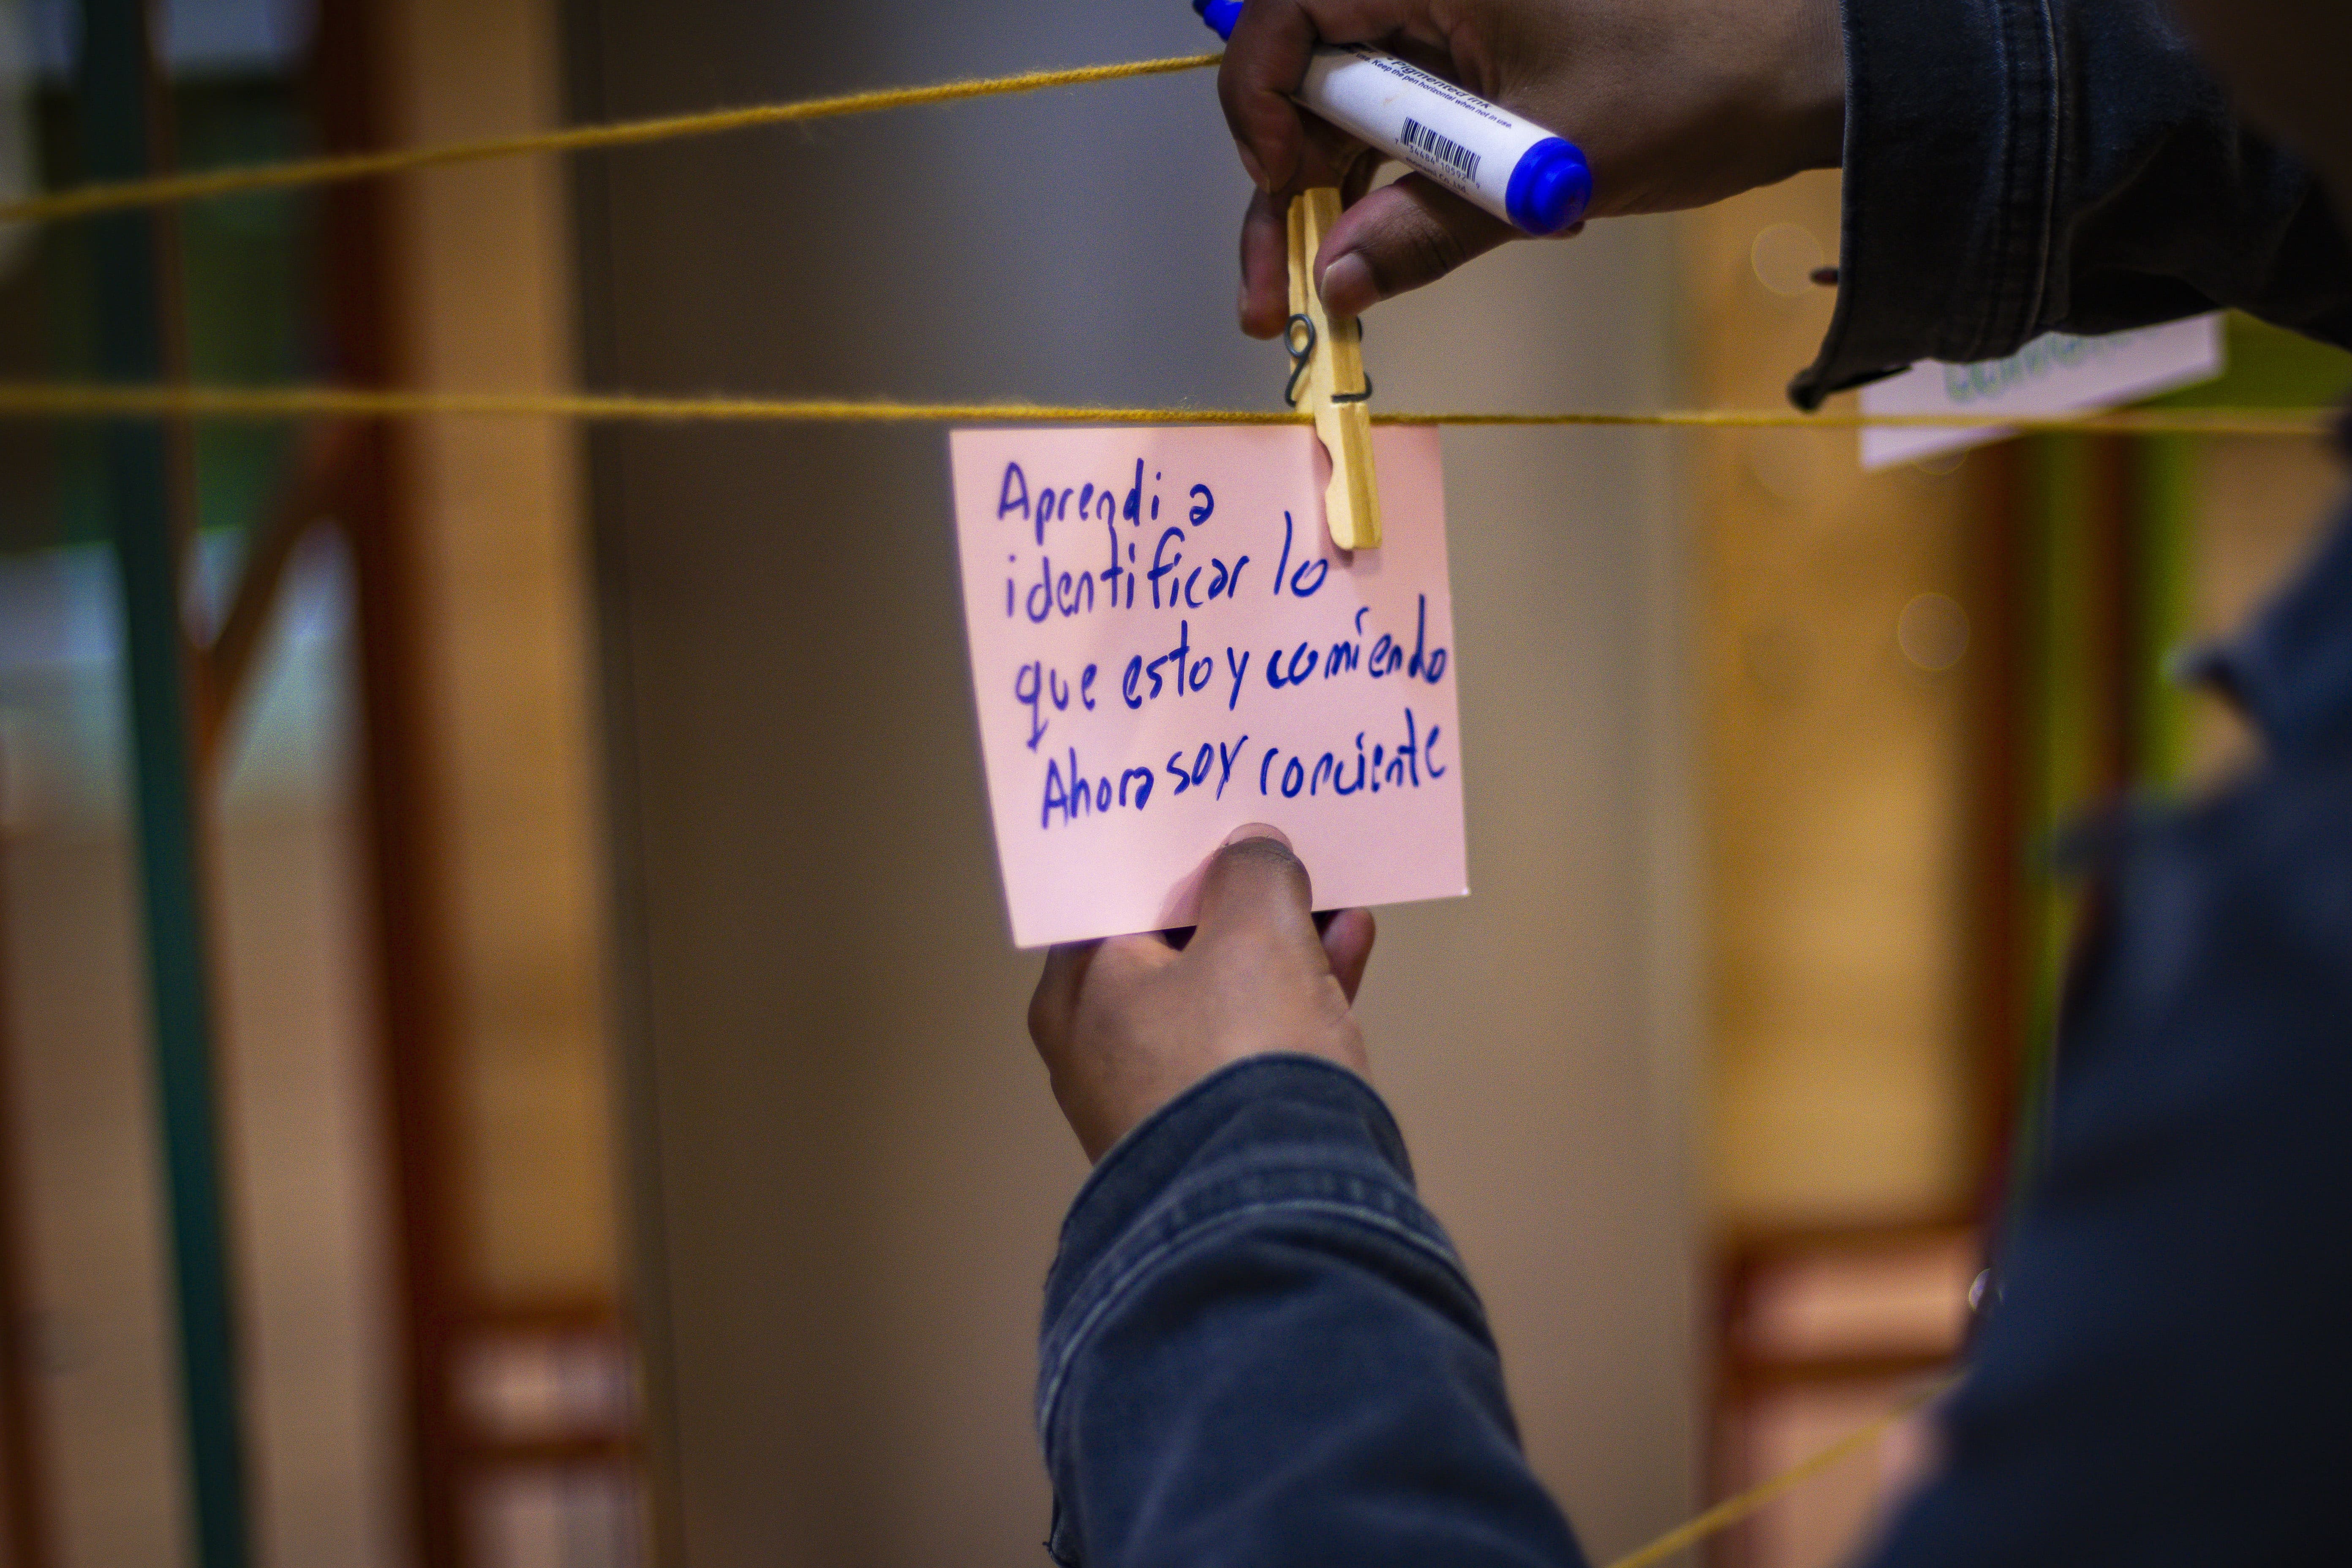 Pigmented ink
use. Keep the pen horizontal when not in use.
Aprendi a
identificar lo
que estoy comiendo
Ahora soy conciente